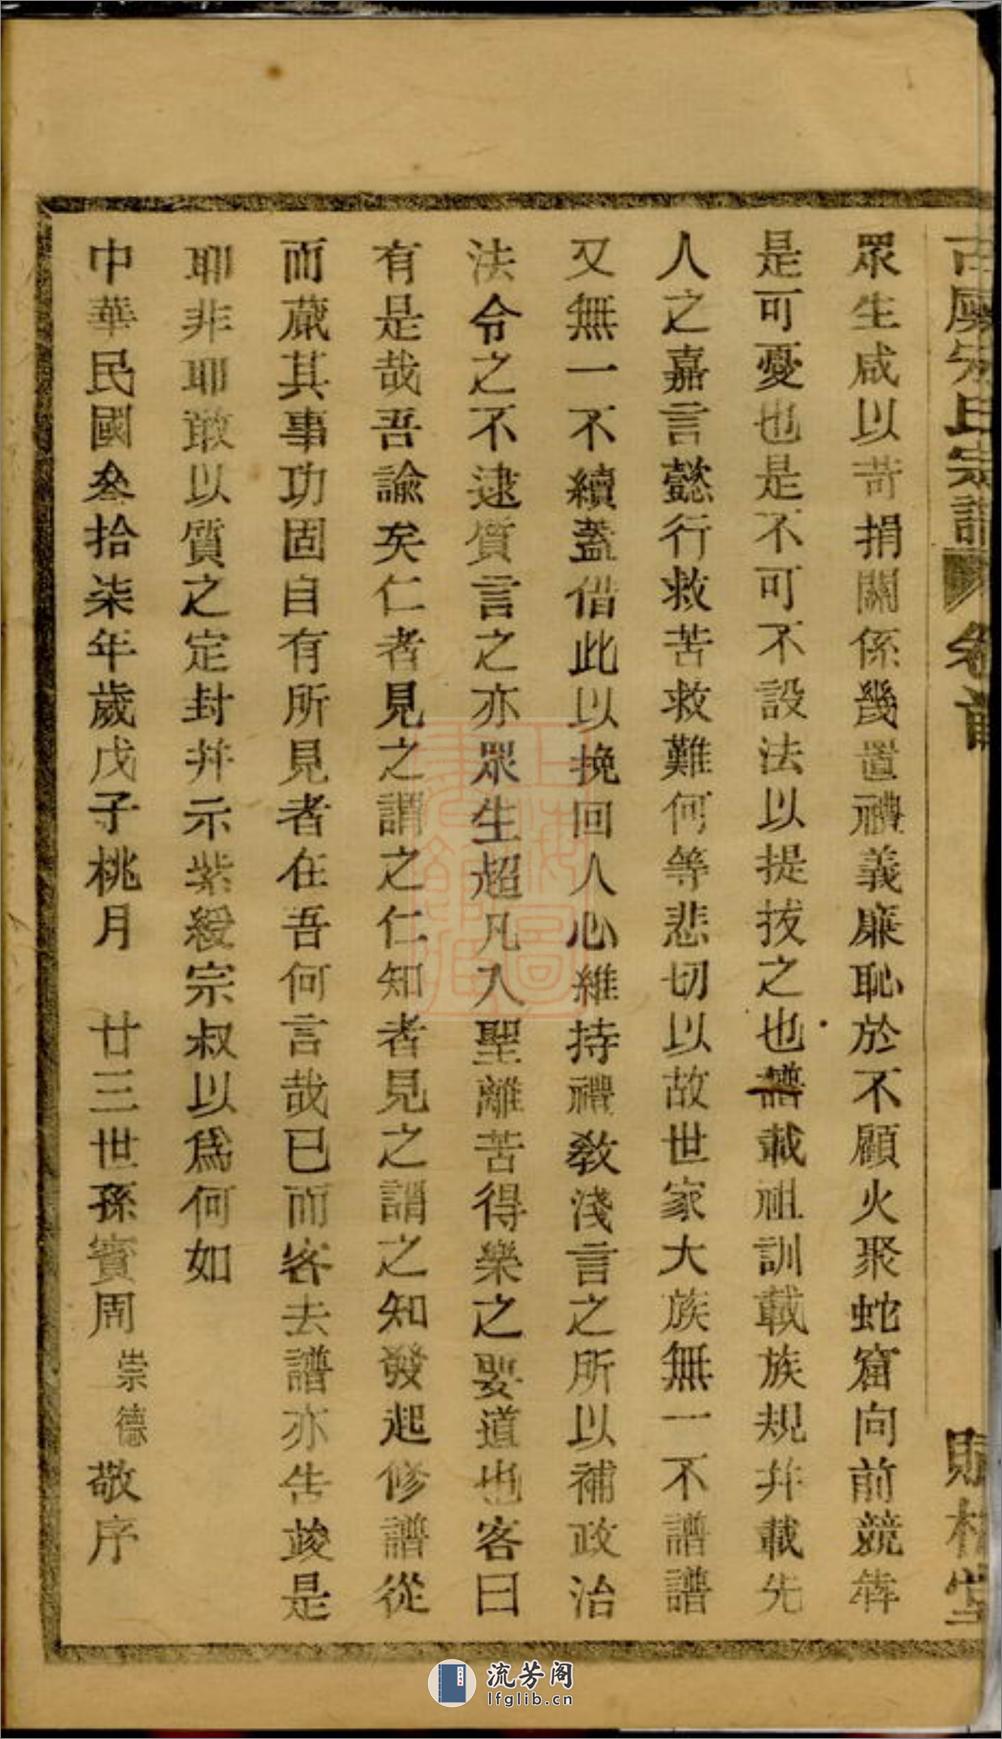 宋氏宗譜 卷首
眾生咸以苛捐關係幾置禮義廉恥於不顧火聚蛇窟向前競犇
是可憂也是不可不設法以提拔之也譜載祖訓載族規并載先
人之嘉言懿行救苦救難何等悲切以故世家大族無一不譜譜
又無一不續蓋借此以挽回人心維持禮教淺言之所以補政治
法令之不逮質言之亦眾生超凡入聖離苦得樂之要道也客曰
有是哉吾諭矣仁者見之謂之仁知者見之謂之知發起修譜從
而蕆其事功固自有所見者在吾何言哉已而客去譜亦告竣是
耶非耶敢以質之定封并示紫綬宗叔以為何如
中華民國叄拾柒年歲戊子桃月 廿三世孫賓周 崇德 敬序
流芳阁
lfglib.cn